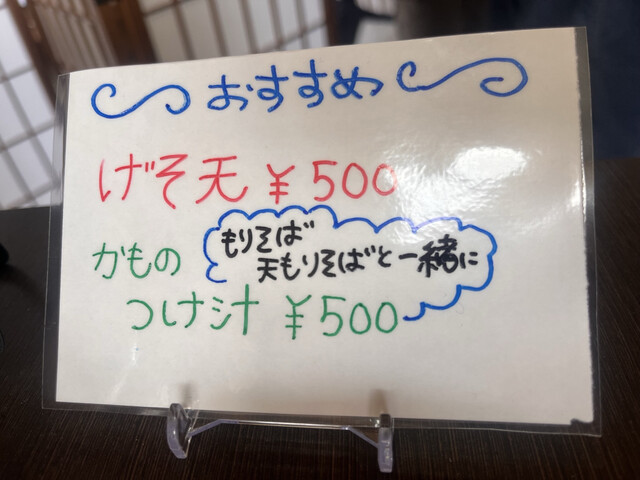 おすすめ
げそ天 ¥500
かもの
もりそば
天もりそばと一緒に
つけ汁 ¥500